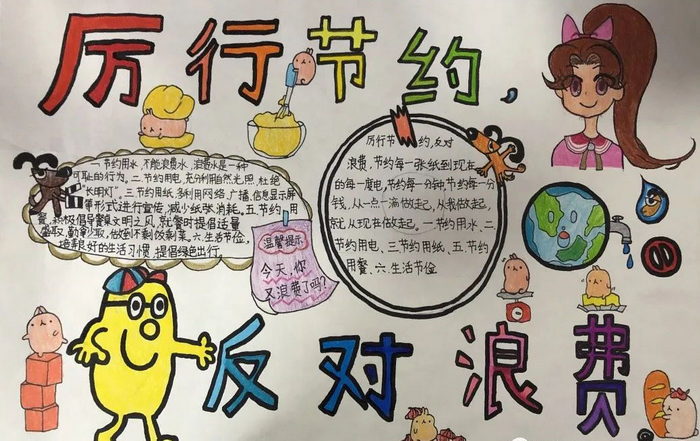 厉行节约,
一节约用水,不能浪费水,浪费水是一种
可耻的行为,二.节约用电,充分利用自然光照,杜绝
“长明灯”,三.节约用纸,多利用网络,广播,信息显示屏
等形式进行宣传,减少纸张消耗。五.节约用
餐,积极倡导餐桌文明之风,就餐时提倡适量
点取,勤拿少取,做到不剩饭剩菜。六.生活节俭,
培养良好的生活习惯,提倡绿色出行。
温馨提示
今天,你
又浪费了吗?
厉行节约,反对
浪费,节约每一张纸到现在
的每一度电,节约每一分钟,节约每一分
钱,从一点一滴做起,从我做起,
就从现在做起。一节约用水、二.
节约用电、三.节约用纸、五.节约
用餐、六.生活节俭
反对浪费